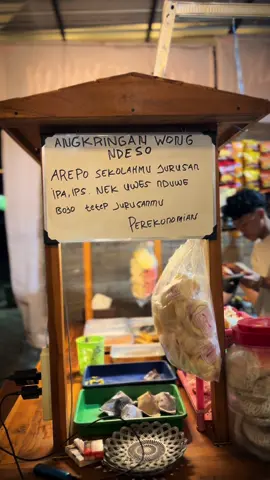 ANGKRINGAN WONG
NDESO
AREPO SEKOLAHMU JURUSAN
IPA, IPS. NEK UWES NDUWE
BOJO tetep JURUSANMU
PEREKONOMIAN